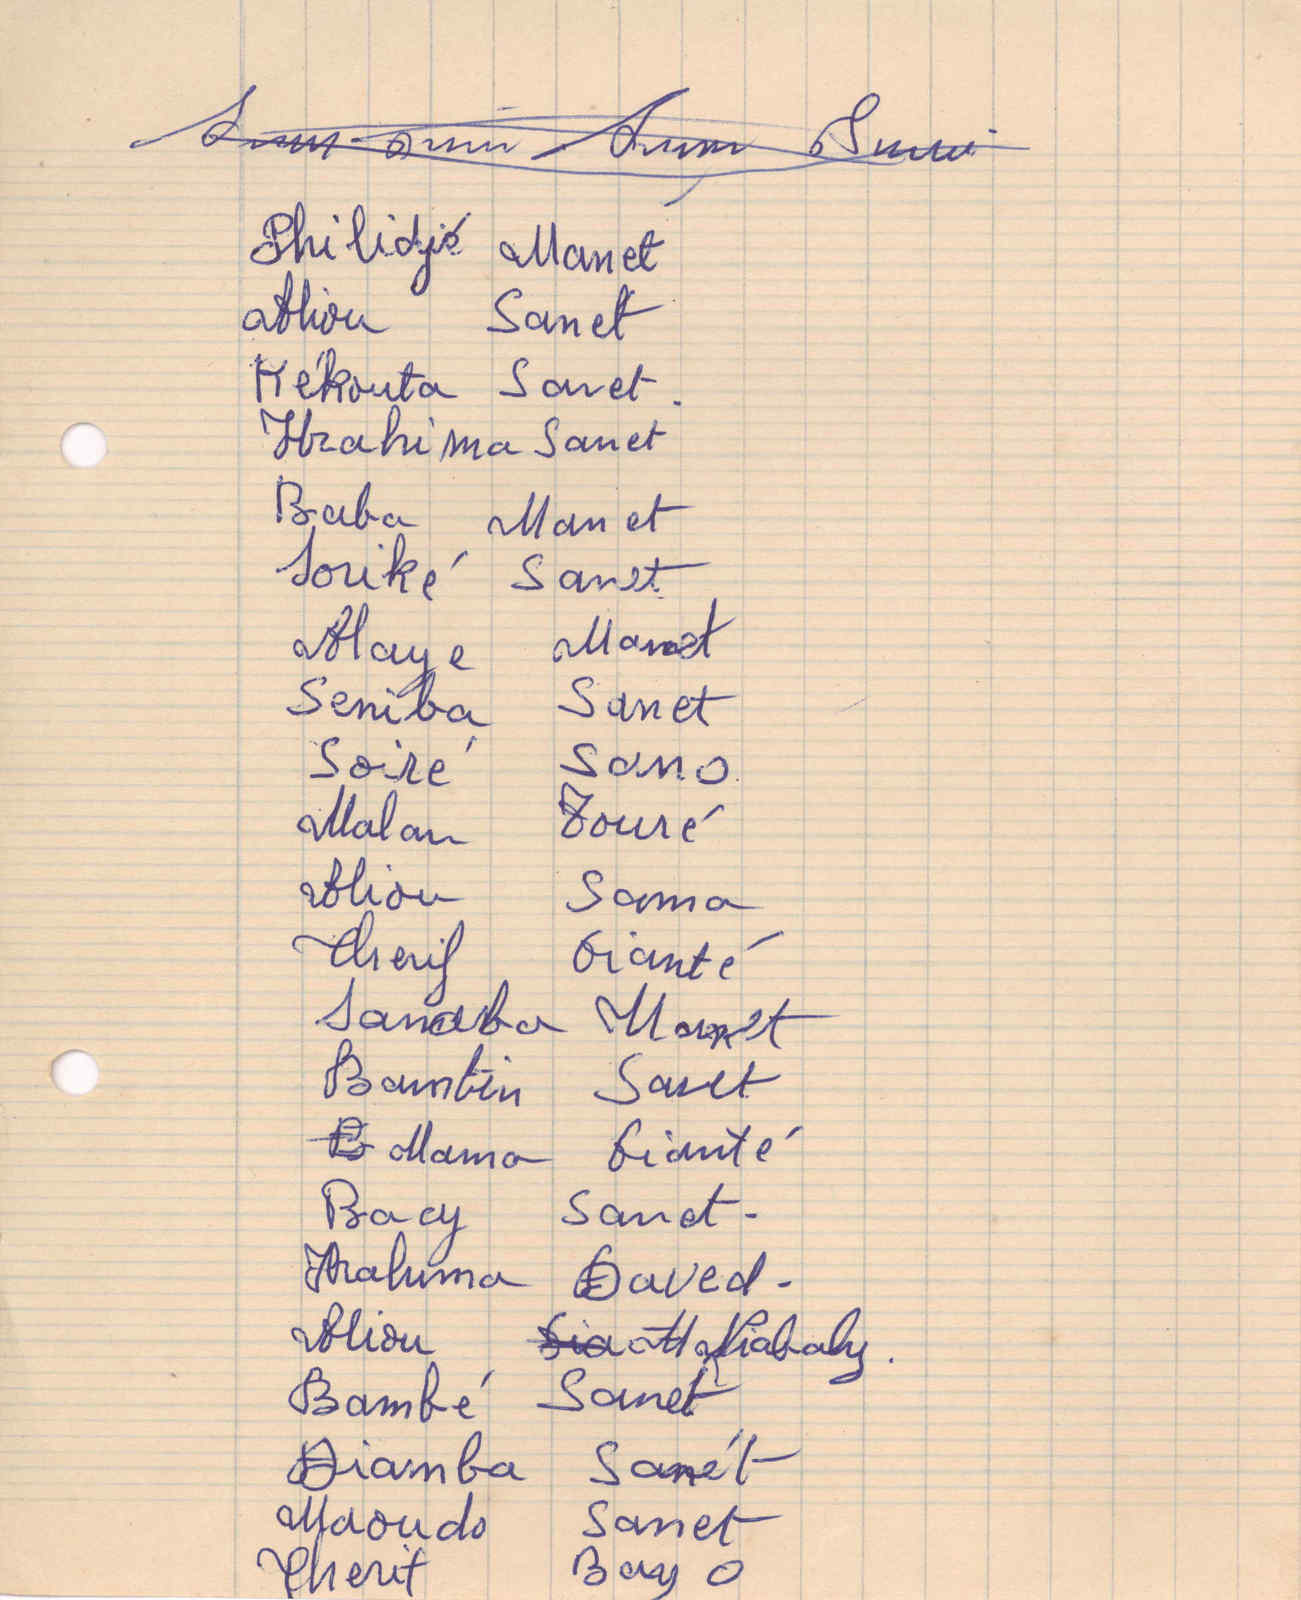 Philidjé Manet
Aliou Sanet
Kékouta Sanet.
Ibrahima Sanet
Baba Manet
Soriké Sanet
Alaye Manet
Seniba Sanet
Soiré Sano
Malan Touré
Aliou Sama
Cherif Gianté
Sanamba Manet
Bambin Sanet
Mama Gianté
Bacy Sanet-
Ibrahima Daved-
Aliou Niabaly.
Bambé Sanet
Diamba Sanét
Maoudo Sanet
Cherif Bayo